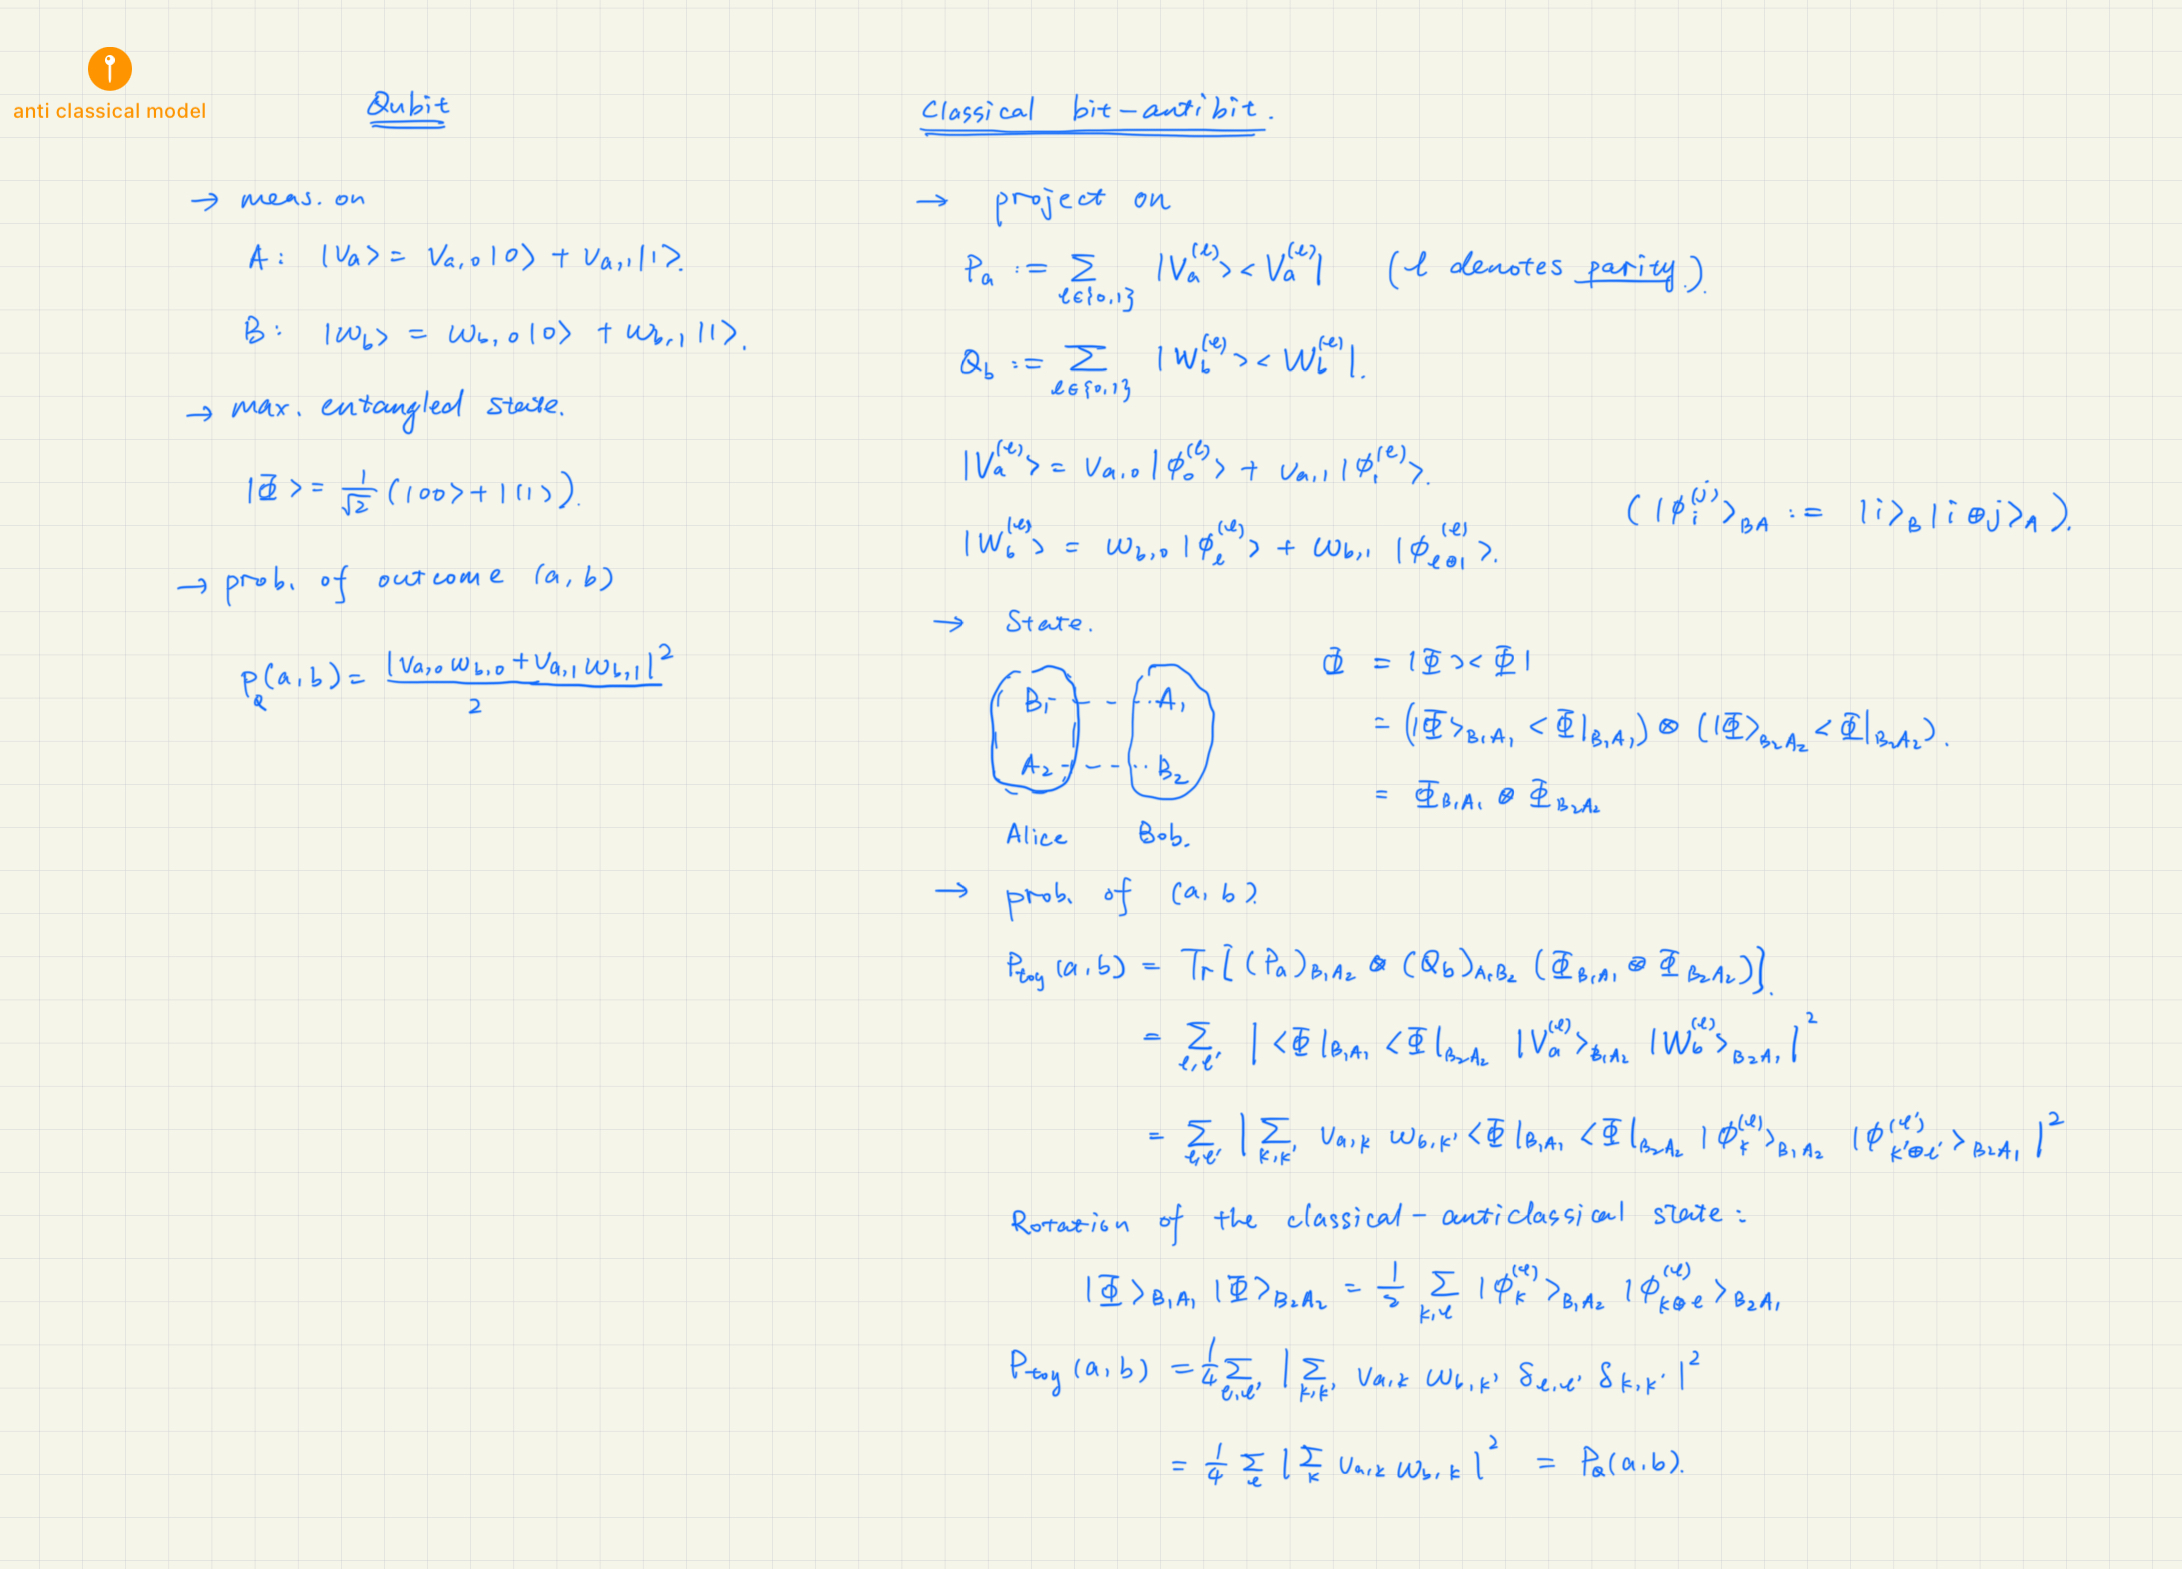 anti classical model
Qubit
→ meas. on
A: |Va> = Va,0|0> + Va,1|1>.
B: |wb> = wb,0|0> + wb,1|1>.
→ max. entangled state.
|Φ> = 1/√2 (|00> + |11>).
→ prob. of outcome (a,b)
PQ(a,b) = |va,0 wb,0 + va,1 wb,1|² / 2
Classical bit-antibit.
→ project on
Pa := Σ ℓ∈{0,1} |Va^(ℓ)><Va^(ℓ)| (ℓ denotes parity.).
Qb := Σ ℓ∈{0,1} |Wb^(ℓ)><Wb^(ℓ)|.
|Va^(ℓ)> = va,0|ϕ0^(ℓ)> + va,1|ϕ1^(ℓ)>.
(|ϕi^(j)>BA := |i>B|i⊕j>A).
|Wb^(ℓ)> = wb,0|ϕℓ^(ℓ)> + wb,1 |ϕℓ⊕1^(ℓ)>.
→ State.
B1 - - - ·· A1
A2 - - - ·· B2
Alice Bob.
Φ = |Φ><Φ|
= (|Φ>B1A1 <Φ|B1A1) ⊗ (|Φ>B2A2 <Φ|B2A2).
= ΦB1A1 ⊗ ΦB2A2
→ prob. of (a,b).
Ptoy(a,b) = Tr[(Pa)B1A2 ⊗ (Qb)A1B2 (ΦB1A1 ⊗ ΦB2A2)].
= Σ ℓ,ℓ' |<Φ|B1A1 <Φ|B2A2 |Va^(ℓ)>B1A2 |Wb^(ℓ)>B2A1|²
= Σ ℓ,ℓ' |Σ k,k' va,k wb,k' <Φ|B1A1 <Φ|B2A2 |ϕk^(ℓ)>B1A2 |ϕk'⊕ℓ'^(ℓ')>B2A1|²
Rotation of the classical-anticlassical state:
|Φ>B1A1 |Φ>B2A2 = 1/2 Σ k,ℓ |ϕk^(ℓ)>B1A2 |ϕk⊕ℓ^(ℓ)>B2A1
Ptoy(a,b) = 1/4 Σ ℓ,ℓ' |Σ k,k' va,k wb,k' δℓ,ℓ' δk,k'|²
= 1/4 Σ ℓ |Σ k va,k wb,k|² = PQ(a,b).